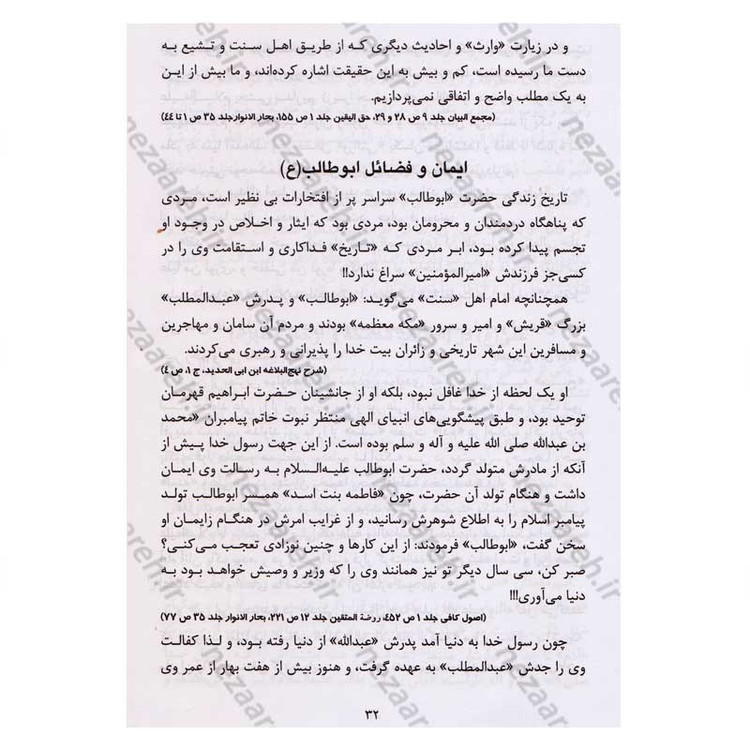 و در زیارت «وارث» و احادیث دیگری که از طریق اهل سنت و تشیع به
دست ما رسیده است، کم و بیش به این حقیقت اشاره کرده‌اند، و ما بیش از این
به یک مطلب واضح و اتفاقی نمی‌پردازیم.
(مجمع البیان جلد ۹ ص ۲۸ و ۲۹، حق الیقین جلد ۱ ص ۱۵۵، بحار الانوار جلد ۳۵ ص ۱ تا ۴۴)
ایمان و فضائل ابوطالب(ع)
تاریخ زندگی حضرت «ابوطالب» سراسر پر از افتخارات بی نظیر است، مردی
که پناهگاه دردمندان و محرومان بود، مردی بود که ایثار و اخلاص در وجود او
تجسم پیدا کرده بود، ابر مردی که «تاریخ» فداکاری و استقامت وی را در
کسی‌جز فرزندش «امیرالمؤمنین» سراغ ندارد!!
همچنانچه امام اهل «سنت» می‌گوید: «ابوطالب» و پدرش «عبدالمطلب»
بزرگ «قریش» و امیر و سرور «مکه معظمه» بودند و مردم آن سامان و مهاجرین
و مسافرین این شهر تاریخی و زائران بیت خدا را پذیرانی و رهبری می‌کردند.
(شرح نهج‌البلاغه ابن ابی الحدید، ج ۱، ص ۴)
او یک لحظه از خدا غافل نبود، بلکه او از جانشینان حضرت ابراهیم قهرمان
توحید بود، و طبق پیشگویی‌های انبیای الهی منتظر نبوت خاتم پیامبران «محمد
بن عبدالله صلی الله علیه و آله و سلم بوده است. از این جهت رسول خدا پیش از
آنکه از مادرش متولد گردد، حضرت ابوطالب علیه‌السلام به رسالت وی ایمان
داشت و هنگام تولد آن حضرت، چون «فاطمه بنت اسد» همسر ابوطالب تولد
پیامبر اسلام را به اطلاع شوهرش رسانید، و از غرایب امرش در هنگام زایمان او
سخن گفت، «ابوطالب» فرمودند: از این کارها و چنین نوزادی تعجب می‌کنی؟
صبر کن، سی سال دیگر تو نیز همانند وی را که وزیر و وصیش خواهد بود به
دنیا می‌آوری!!!
(اصول کافی جلد ۱ ص ۴۵۲، روضة المتقین جلد ۱۲ ص ۲۲۱، بحار الانوار جلد ۳۵ ص ۷۷)
چون رسول خدا به دنیا آمد پدرش «عبدالله» از دنیا رفته بود، و لذا کفالت
وی را جدش «عبدالمطلب» به عهده گرفت، و هنوز بیش از هفت بهار از عمر وی
۳۲
nezaareh.ir